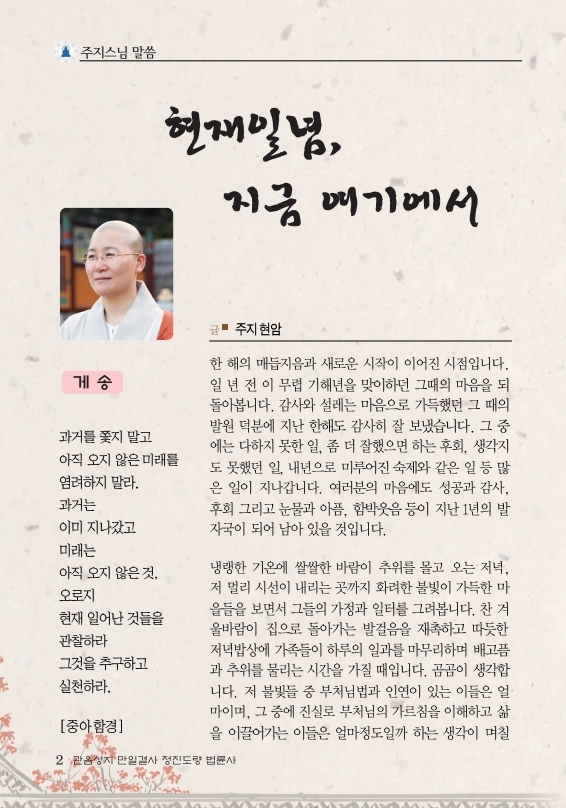 주지스님 말씀
현재일념,
지금 여기에서
글 ■ 주지 현암
게 송
과거를 쫓지 말고
아직 오지 않은 미래를
염려하지 말라.
과거는
이미 지나갔고
미래는
아직 오지 않은 것,
오로지
현재 일어난 것들을
관찰하라
그것을 추구하고
실천하라.
[중아함경]
한 해의 매듭지음과 새로운 시작이 이어진 시점입니다.
일 년 전 이 무렵 기해년을 맞이하던 그때의 마음을 되
돌아봅니다. 감사와 설레는 마음으로 가득했던 그 때의
발원 덕분에 지난 한해도 감사히 잘 보냈습니다. 그 중
에는 다하지 못한 일, 좀 더 잘했으면 하는 후회, 생각지
도 못했던 일, 내년으로 미루어진 숙제와 같은 일 등 많
은 일이 지나갑니다. 여러분의 마음에도 성공과 감사,
후회 그리고 눈물과 아픔, 함박웃음 등이 지난 1년의 발
자국이 되어 남아 있을 것입니다.
냉랭한 기온에 쌀쌀한 바람이 추위를 몰고 오는 저녁,
저 멀리 시선이 내리는 곳까지 화려한 불빛이 가득한 마
을들을 보면서 그들의 가정과 일터를 그려봅니다. 찬 겨
울바람이 집으로 돌아가는 발걸음을 재촉하고 따듯한
저녁밥상에 가족들이 하루의 일과를 마무리하며 배고픔
과 추위를 물리는 시간을 가질 때입니다. 곰곰이 생각합
니다. 저 불빛들 중 부처님법과 인연이 있는 이들은 얼
마이며, 그 중에 진실로 부처님의 가르침을 이해하고 삶
을 이끌어가는 이들은 얼마정도일까 하는 생각이 며칠
2 관음성지 만일결사 정진도량 법륜사